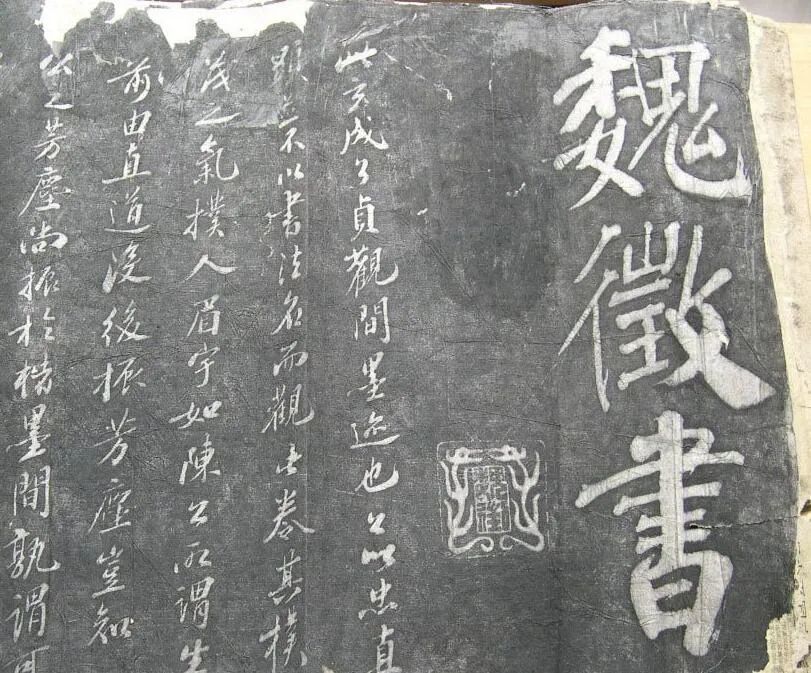 魏徵書
此玄成公貞觀間墨迹也公以忠貞
顯宗不以書法名而觀此卷其樸
茂之氣撲人眉宇如陳公所謂生
前由直道沒後振芳塵豈知
公之芳塵尚振於楮墨間孰謂可